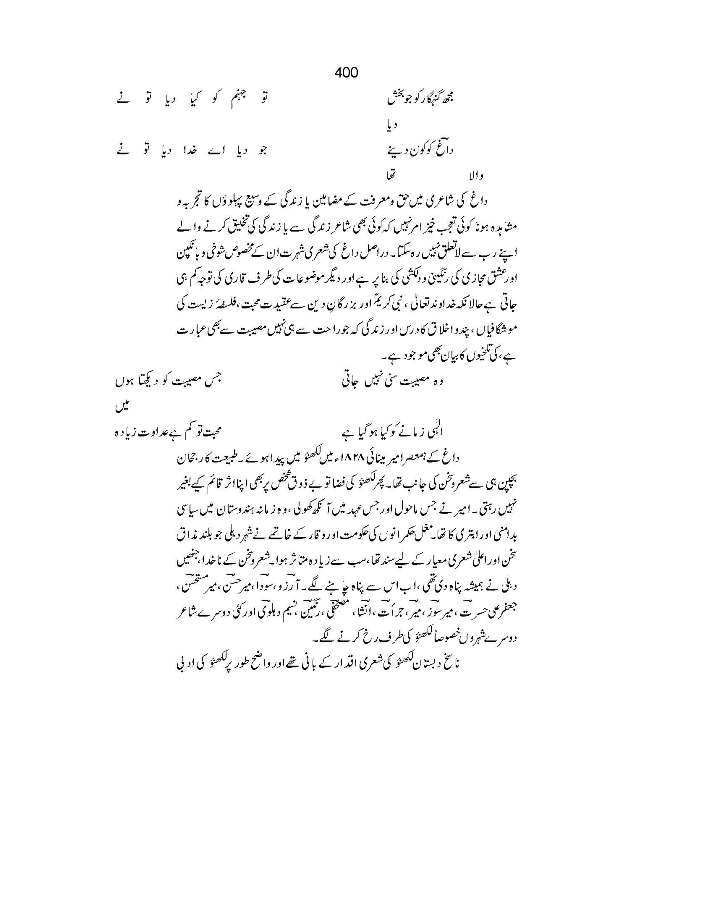 400
مجھ گنہگار کو جو بخش تو جہنم کو کیا دیا تو نے
دیا
داغ کو کون دینے جو دیا اے خدا دیا تو نے
والا تھا
داغ کی شاعری میں حق ومعرفت کے مضامین یا زندگی کے وسیع پہلوؤں کا تجربہ و
مشاہدہ ہونا کوئی تعجب خیز امر نہیں کہ کوئی بھی شاعر زندگی سے یا زندگی کی تخلیق کرنے والے
اپنے رب سے لاتعلق نہیں رہ سکتا۔ دراصل داغ کی شعری شہرت ان کے مخصوص شوخی و بانکپن
اور عشق مجازی کی رنگینی و دلکشی کی بنا پر ہے اور دیگر موضوعات کی طرف قاری کی توجہ کم ہی
جاتی ہے حالانکہ خداوند تعالیٰ ، نبی کریمؐ اور بزرگانِ دین سے عقیدت محبت ،فلسفۂ زیست کی
موشگافیاں ، پند و اخلاق کا درس اور زندگی کہ جو راحت سے ہی نہیں مصیبت سے بھی عبارت
ہے، کی تلخیوں کا بیان بھی موجود ہے۔
وہ مصیبت سنی نہیں جاتی جس مصیبت کو دیکھتا ہوں
میں
الٰہی زمانے کو کیا ہو گیا ہے محبت تو کم ہے عداوت زیادہ
داغ کے ہمعصر امیر مینائی ۱۸۲۸ء میں لکھنؤ میں پیدا ہوئے ۔ طبیعت کا رجحان
بچپن ہی سے شعر و سخن کی جانب تھا۔ پھر لکھنؤ کی فضا تو بے ذوق شخص پر بھی اپنا اثر قائم کیے بغیر
نہیں رہتی ۔ امیر نے جس ماحول اور جس عہد میں آنکھ کھولی ،وہ زمانہ ہندوستان میں سیاسی
بدامنی اور ابتری کا تھا۔ مغل حکمرانوں کی حکومت اور وقار کے خاتمے نے شہر دہلی جو بلند مذاق
سخن اور اعلیٰ شعری معیار کے لیے سند تھا ،سب سے زیادہ متاثر ہوا۔ شعر و سخن کے ناخدا ،جنھیں
دہلی نے ہمیشہ پناہ دی تھی ، اب اس سے پناہ چاہنے لگے۔ آرزو ،سودا ،میر حسن ، میر مستحسن ،
جعفر علی حسرت ، میر سوز ، میر ، جرأت ، انشا ، مصحفی ، رنگین ، نسیم دہلوی اور کئی دوسرے شاعر
دوسرے شہروں خصوصاً لکھنؤ کی طرف رخ کرنے لگے۔
ناسخ دبستان لکھنؤ کی شعری اقدار کے بانی تھے اور واضح طور پر لکھنؤ کی ادبی